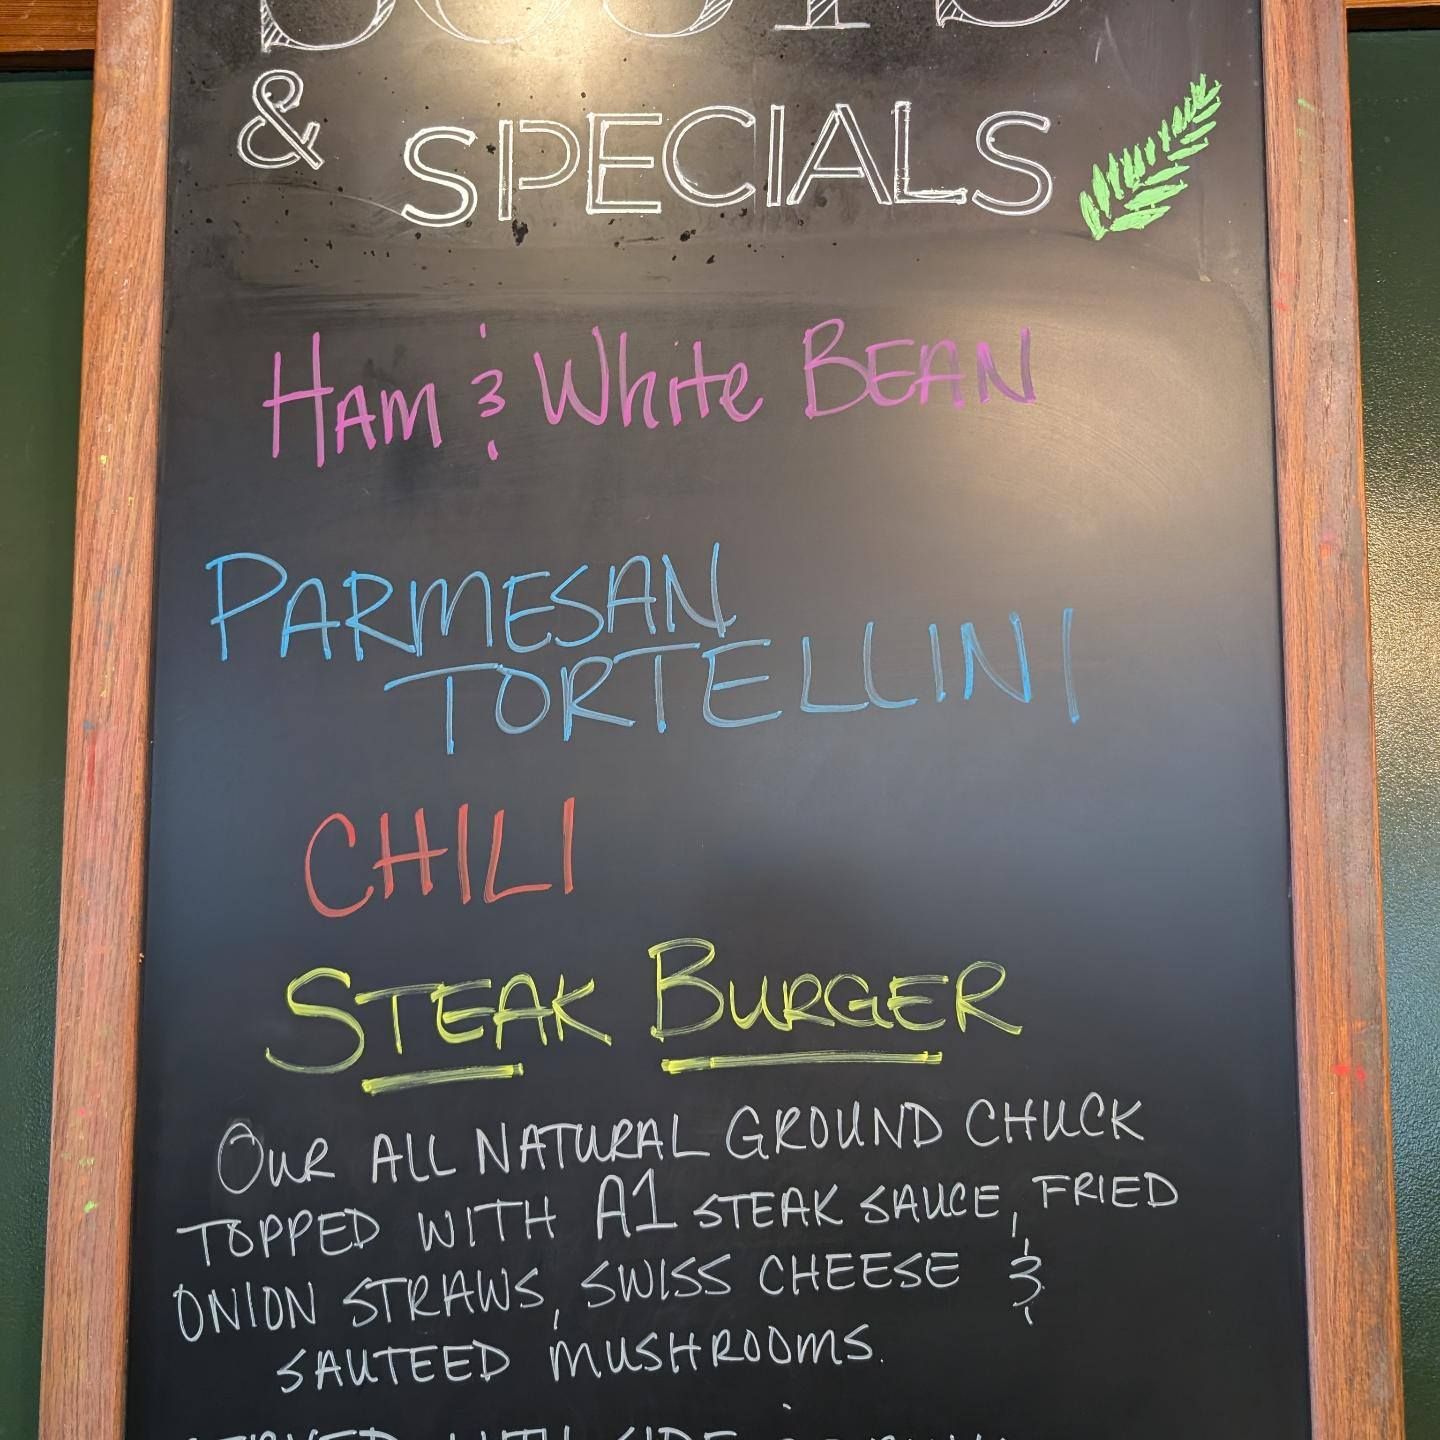 & SPECIALS
HAM & White BEAN
PARMESAN
TORTELLINI
CHILI
STEAK BURGER
OUR ALL NATURAL GROUND CHUCK
TOPPED WITH A1 STEAK SAUCE, FRIED
ONION STRAWS, SWISS CHEESE &
SAUTEED MUSHROOMS.
SERVED WITH SIDE